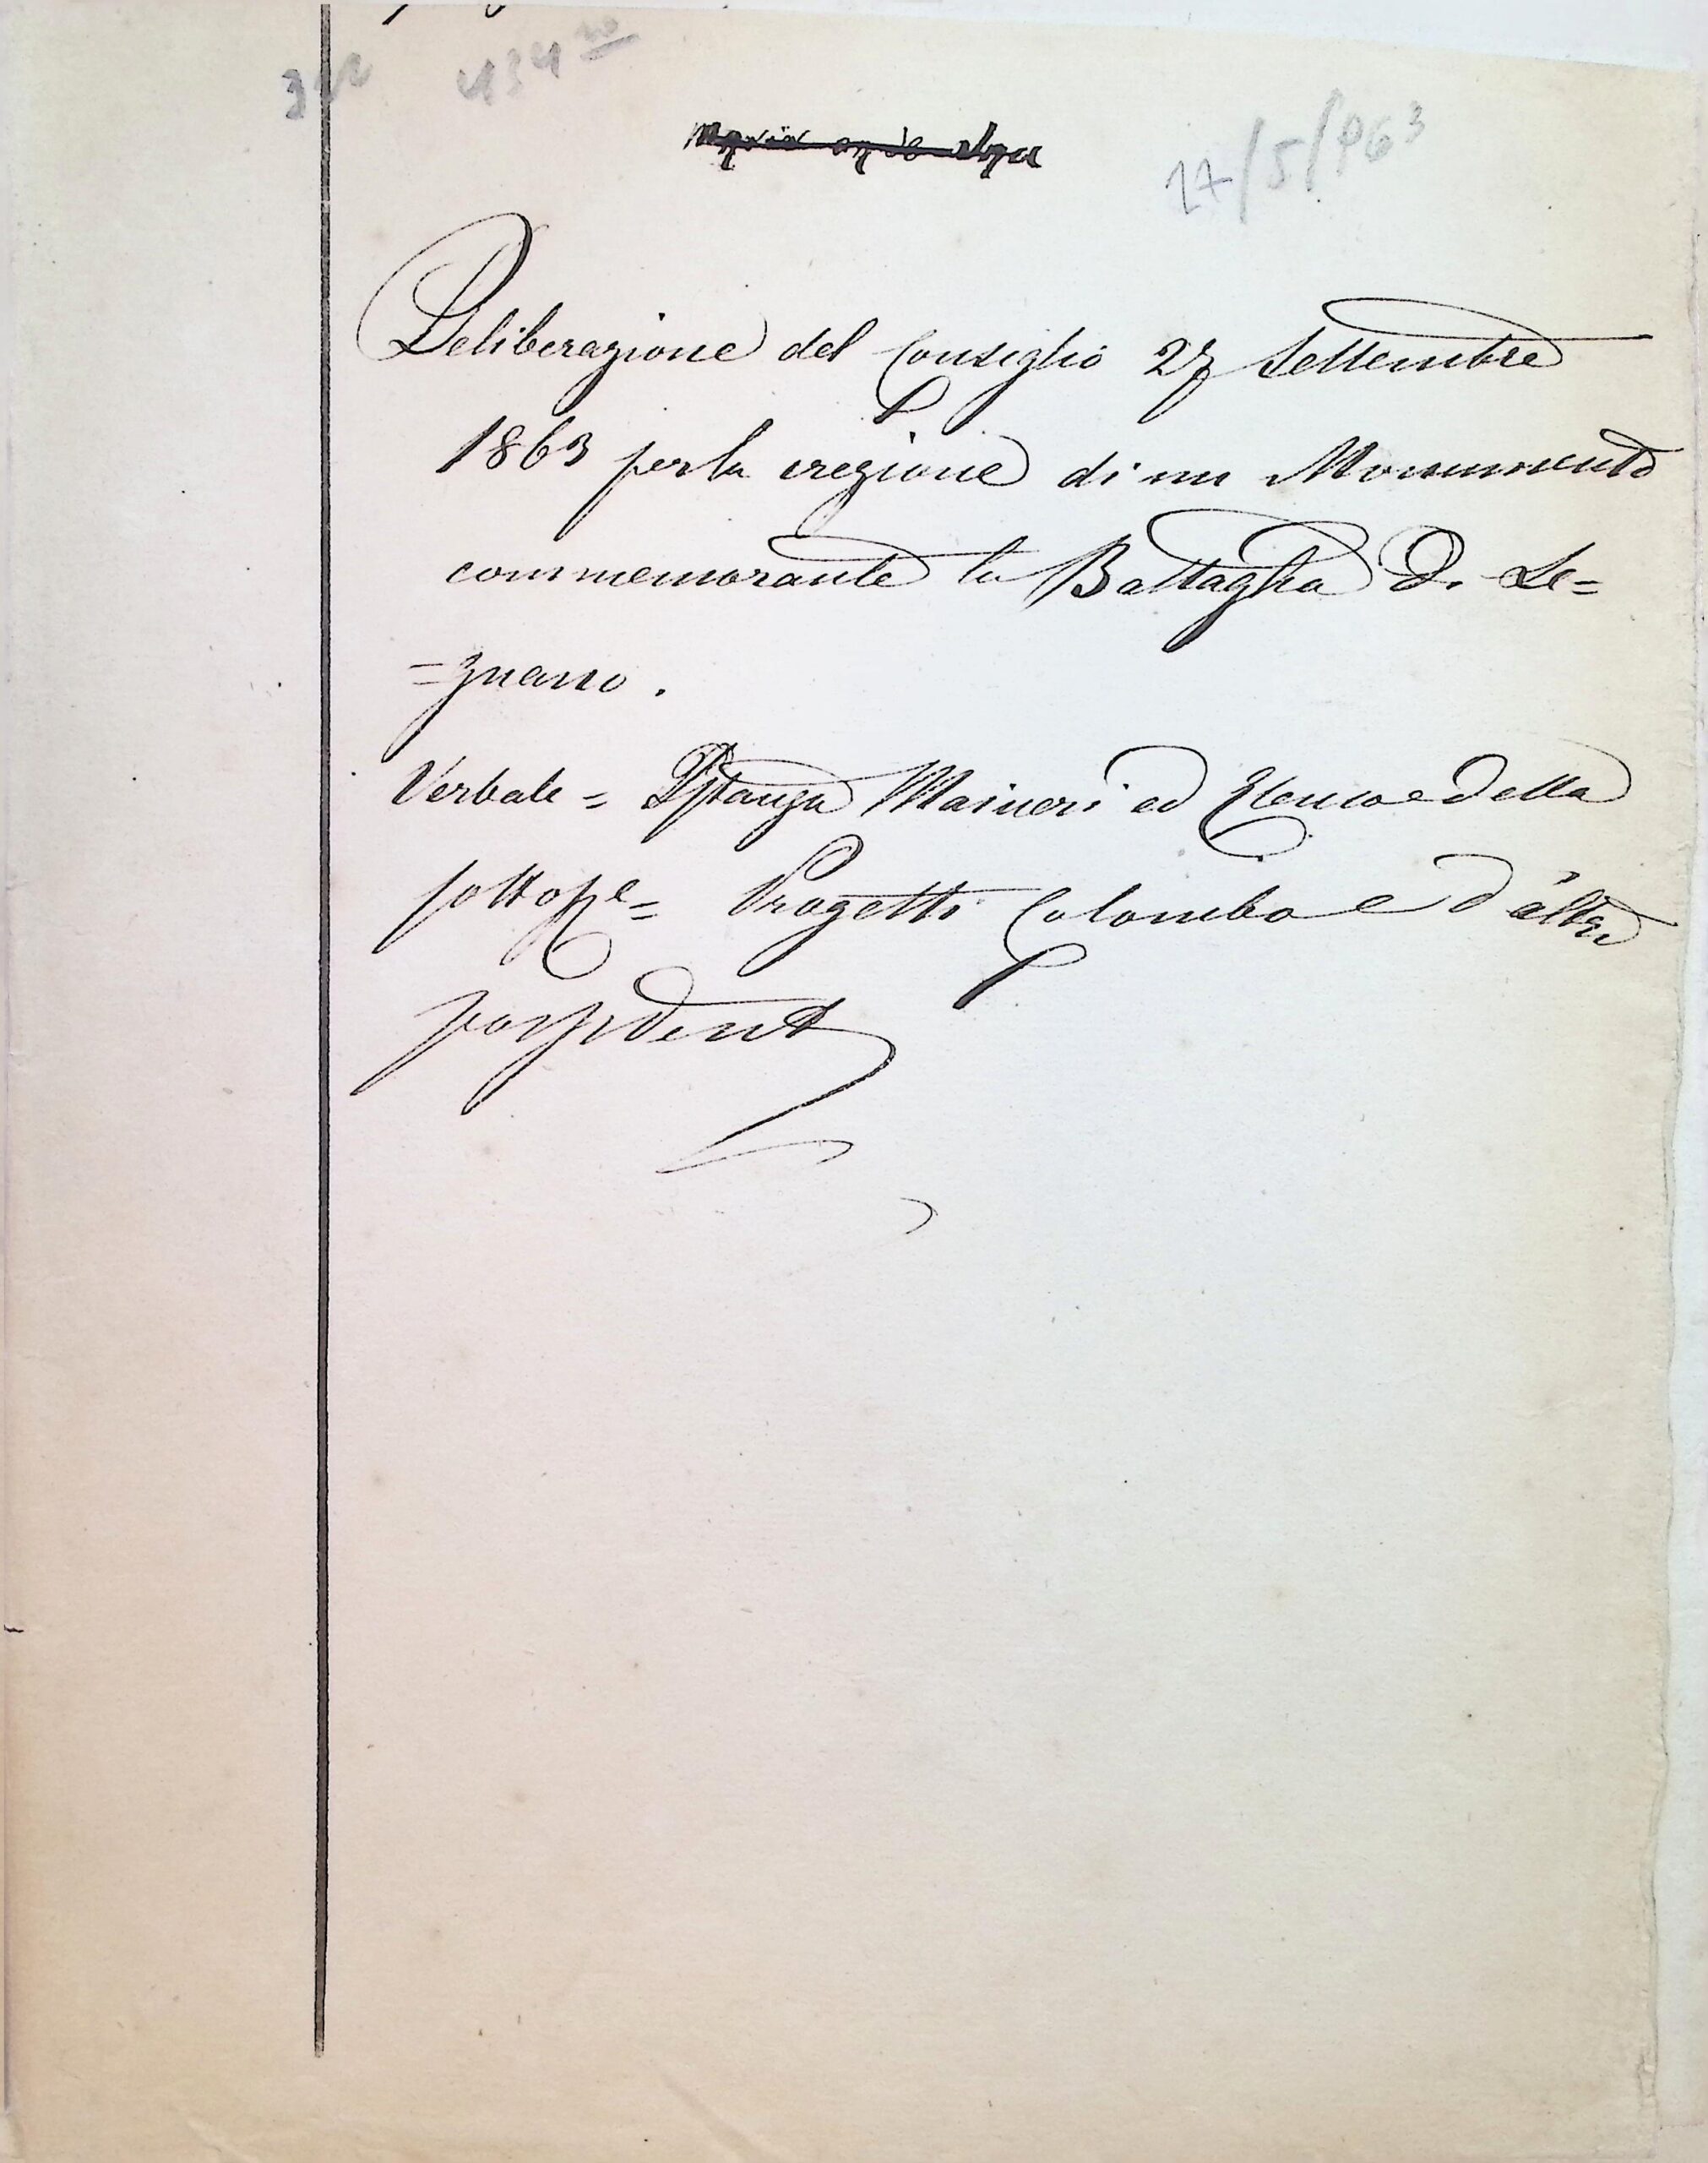 434
27/5/963
Deliberazione del Consiglio 27 Settembre
1863 per la erezione di un Monumento
commemorante la Battaglia di Le=
=gnano.
Verbale = Istanza Maineri ed Elenco della
Progetti Colombo e d'altri